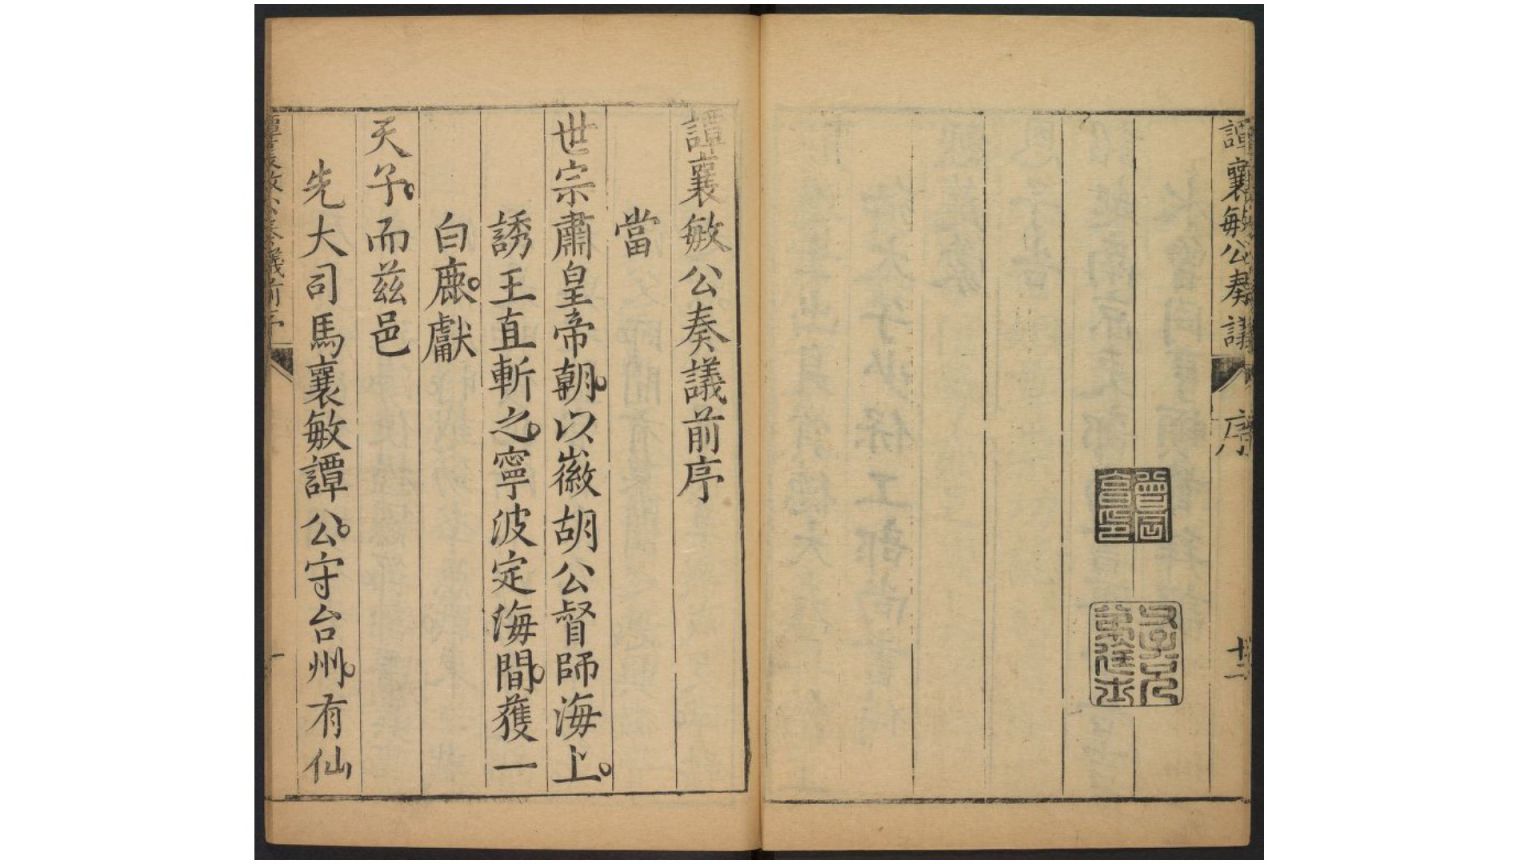 譚襄敏公奏議
序
十二
譚襄敏公奏議前序
當
世宗肅皇帝朝。以徽胡公督師海上。
誘王直斬之。寧波定海間。獲一
白鹿。獻
天子。而茲邑
先大司馬襄敏譚公。守台州。有仙
譚襄敏公奏議前序
一